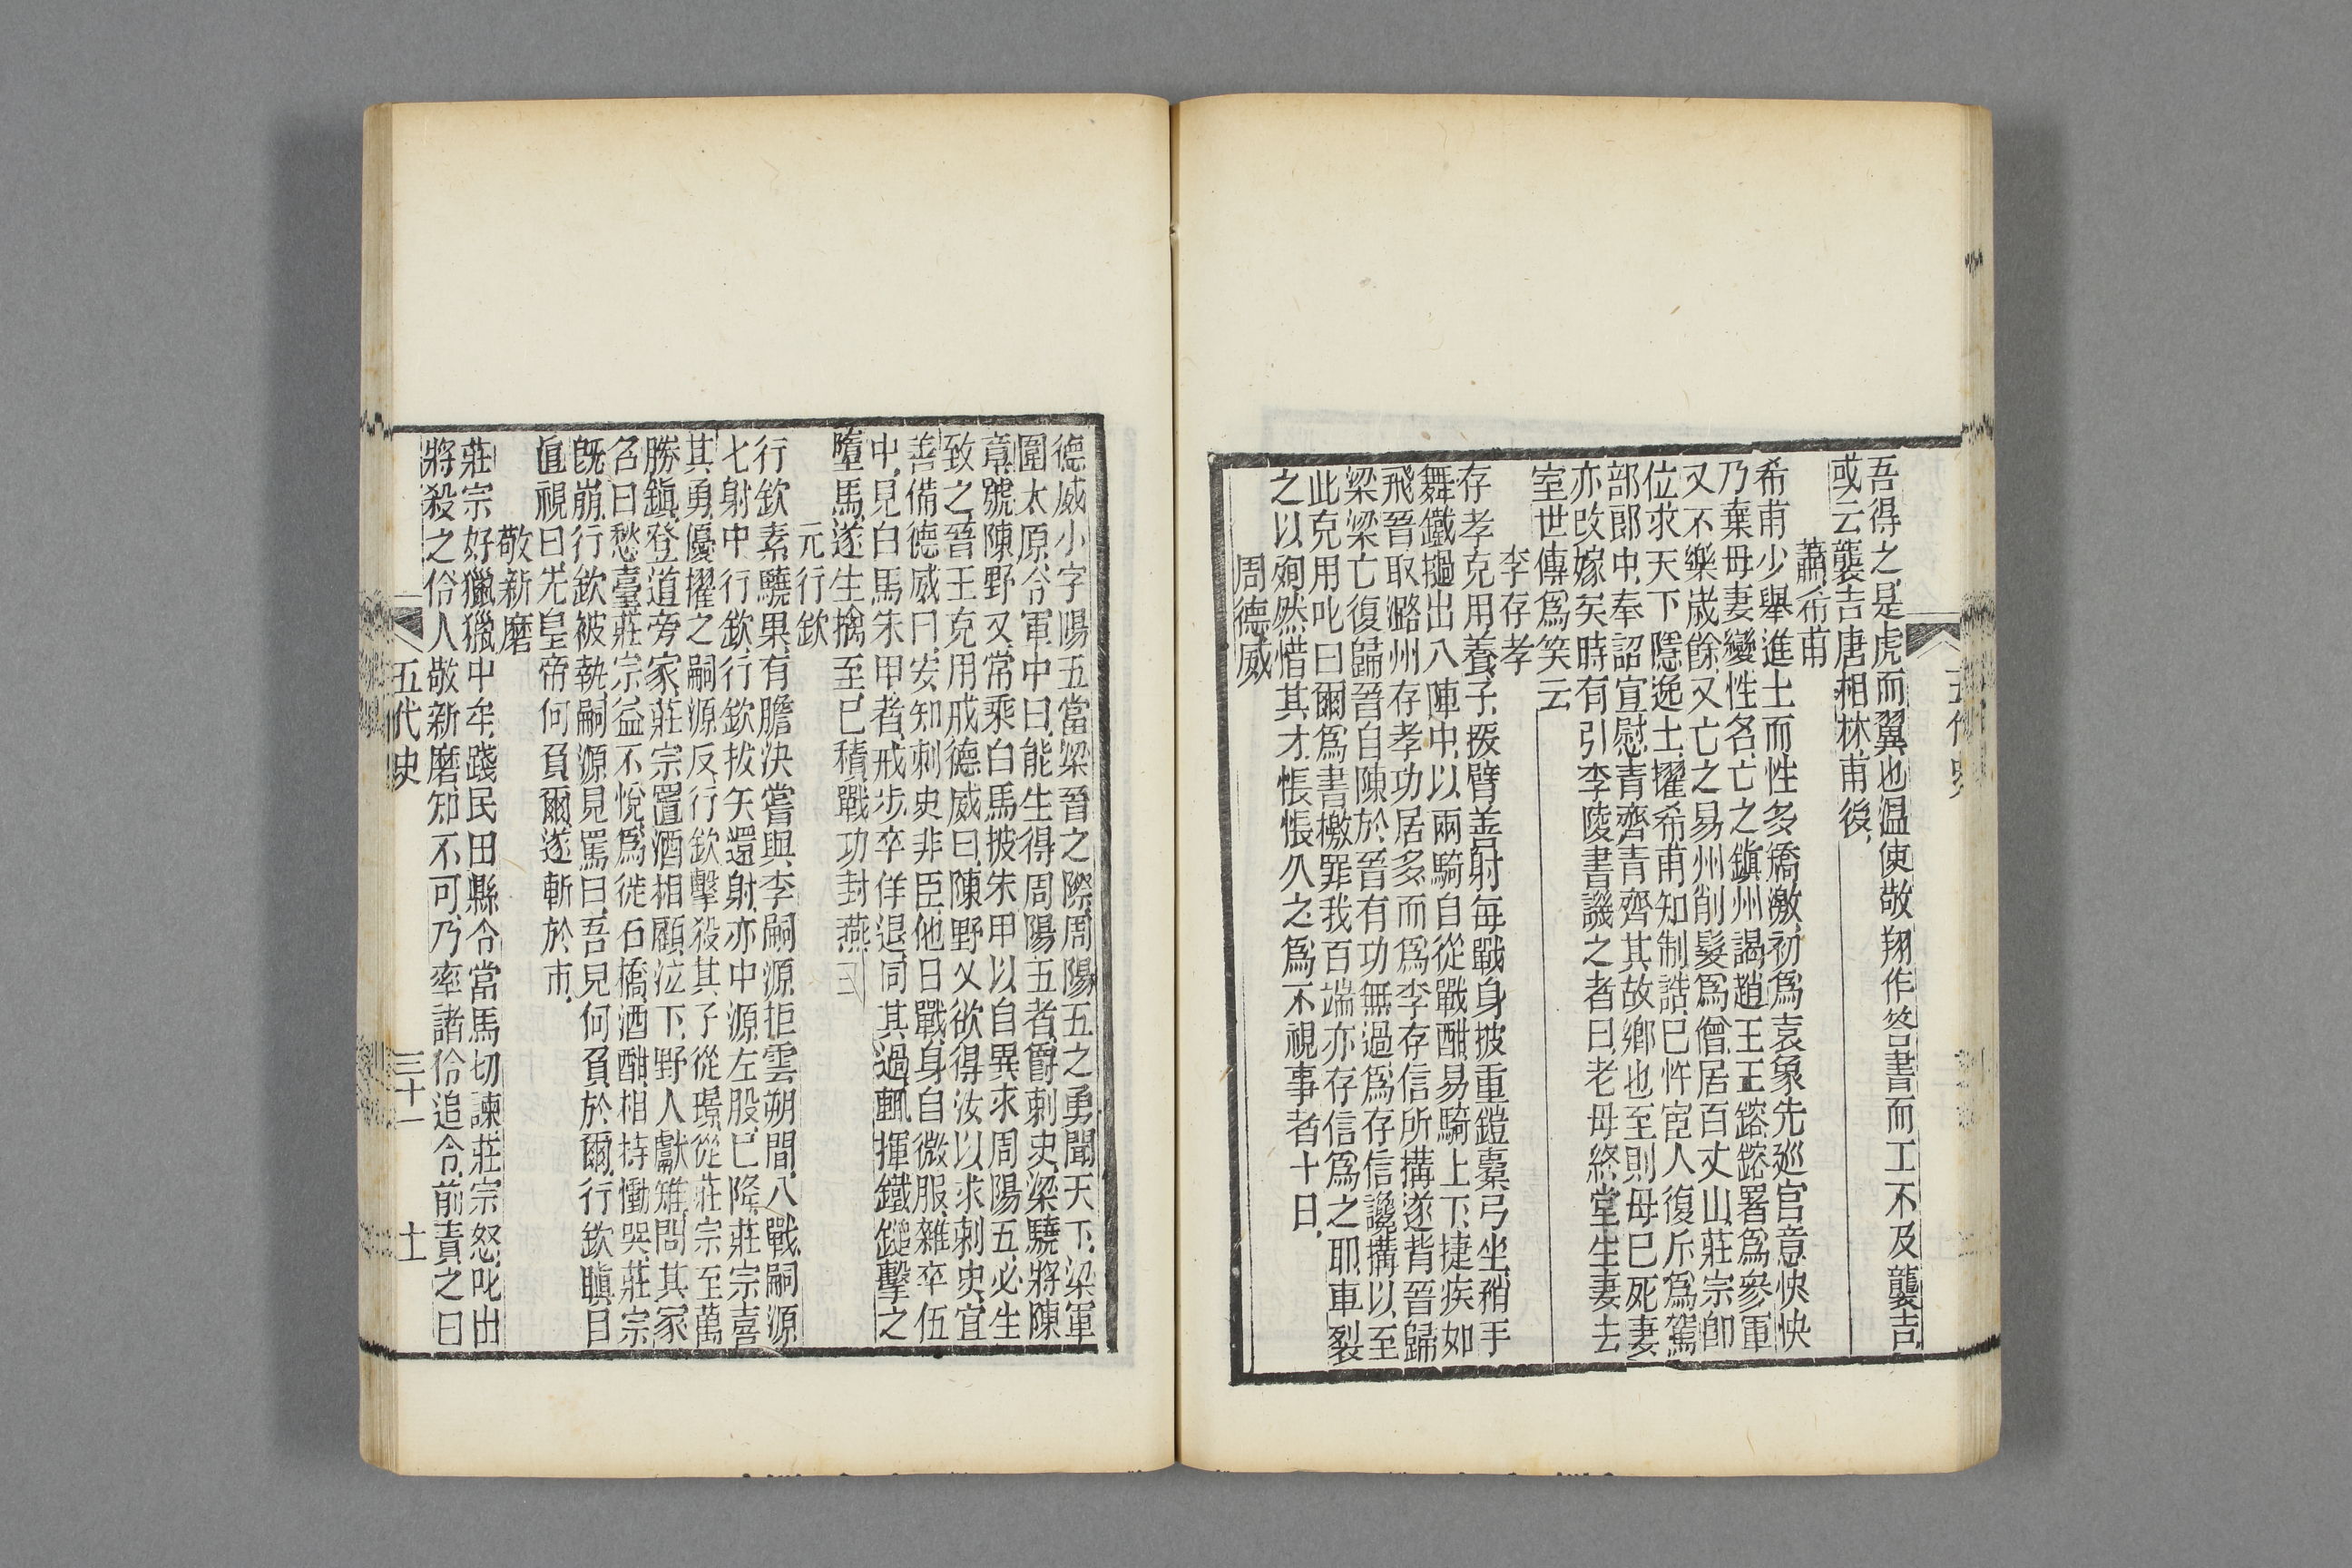 吾得之是虎而翼也温使敬翔作答書而工不及襲吉
或云襲吉唐相林甫後
蕭希甫
希甫少舉進士而性多矯激初爲袁象先廵官意怏怏
乃棄母妻變姓名亡之鎮州謁趙王王鎔鎔署爲參軍
又不樂歳餘又亡之易州削髮爲僧居百丈山莊宗卽
位求天下隱逸士擢希甫知制誥已忤宦人復斥爲駕
部郎中奉詔宣慰青齊青齊其故鄉也至則母已死妻
亦改嫁矣時有引李陵書譏之者曰老母終堂生妻去
室世傳爲笑云
李存孝
存孝克用養子猨臂善射每戰身披重鎧櫜弓坐矟手
舞鐵撾出入陣中以兩騎自從戰酣易騎上下捷疾如
飛晉取潞州存孝功居多而爲李存信所搆遂背晉歸
梁梁亡復歸晉自陳於晉有功無過爲存信讒搆以至
此克用叱曰爾爲書檄罪我百端亦存信爲之耶車裂
之以殉然惜其才悵悵久之爲不視事者十日
周德威
五代史
德威小字陽五當梁晉之際周陽五之勇聞天下梁軍
圍太原令軍中曰能生得周陽五者爵刺史梁驍將陳
章號陳野叉常乘白馬披朱甲以自異求周陽五必生
致之晉王克用戒德威曰陳野叉欲得汝以求刺史宜
善備德威曰安知刺史非臣他日戰身自微服雜卒伍
中見白馬朱甲者戒步卒佯退伺其過輒揮鐵鎚擊之
墮馬遂生擒至已積戰功封燕王
元行欽
行欽素驍果有膽決嘗與李嗣源拒雲朔間八戰嗣源
七射中行欽行欽拔矢還射亦中源左股已降莊宗喜
其勇優擢之嗣源反行欽擊殺其子從璟從莊宗至萬
勝鎮登道旁家莊宗置酒相顧泣下野人獻雉問其家
名曰愁臺莊宗益不悅爲徙石橋酒酣相持慟哭莊宗
旣崩行欽被執嗣源見罵曰吾見何負於爾行欽瞋目
直視曰先皇帝何負爾遂斬於市
敬新磨
莊宗好獵獵中牟踐民田縣令當馬切諫莊宗怒叱出
將殺之伶人敬新磨知不可乃率諸伶追令前責之曰
五代史
三十一
十一